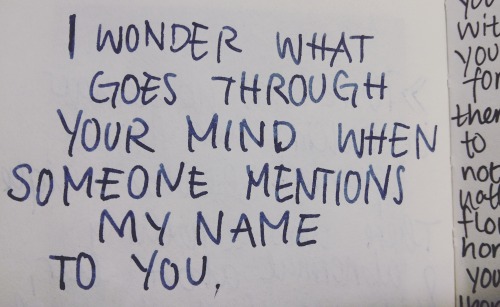 I WONDER WHAT
GOES THROUGH
YOUR MIND WHEN
SOMEONE MENTIONS
MY NAME
TO YOU.
you
with
you
for
them
to
not
flow
you